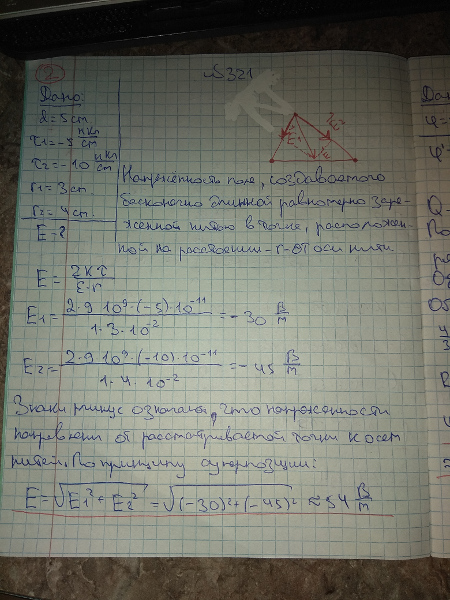 2
№321
Дано:
d = 5 cm
τ1 = -5 нКл/cm
τ2 = -10 нКл/cm
r1 = 3 cm
r2 = 4 cm
E = ?
E1
E2
Напряженность поля, создаваемого
бесконечно длинной равномерно заря-
женной нитью в точке, расположен-
ной на расстоянии - r - от оси нити
E = 2kτ / ε·r
E1 = 2·9·10⁹·(-5)·10⁻¹¹ / 1·3·10⁻² = -30 В/m
E2 = 2·9·10⁹·(-10)·10⁻¹¹ / 1·4·10⁻² = -45 В/m
Знаки минус означают, что напряженности
направлены от рассматриваемой точки к осям
нитей. По принципу суперпозиции:
E = √E1² + E2² = √(-30)² + (-45)² ≈ 54 В/m
Дано
φ =
φ'
Q -